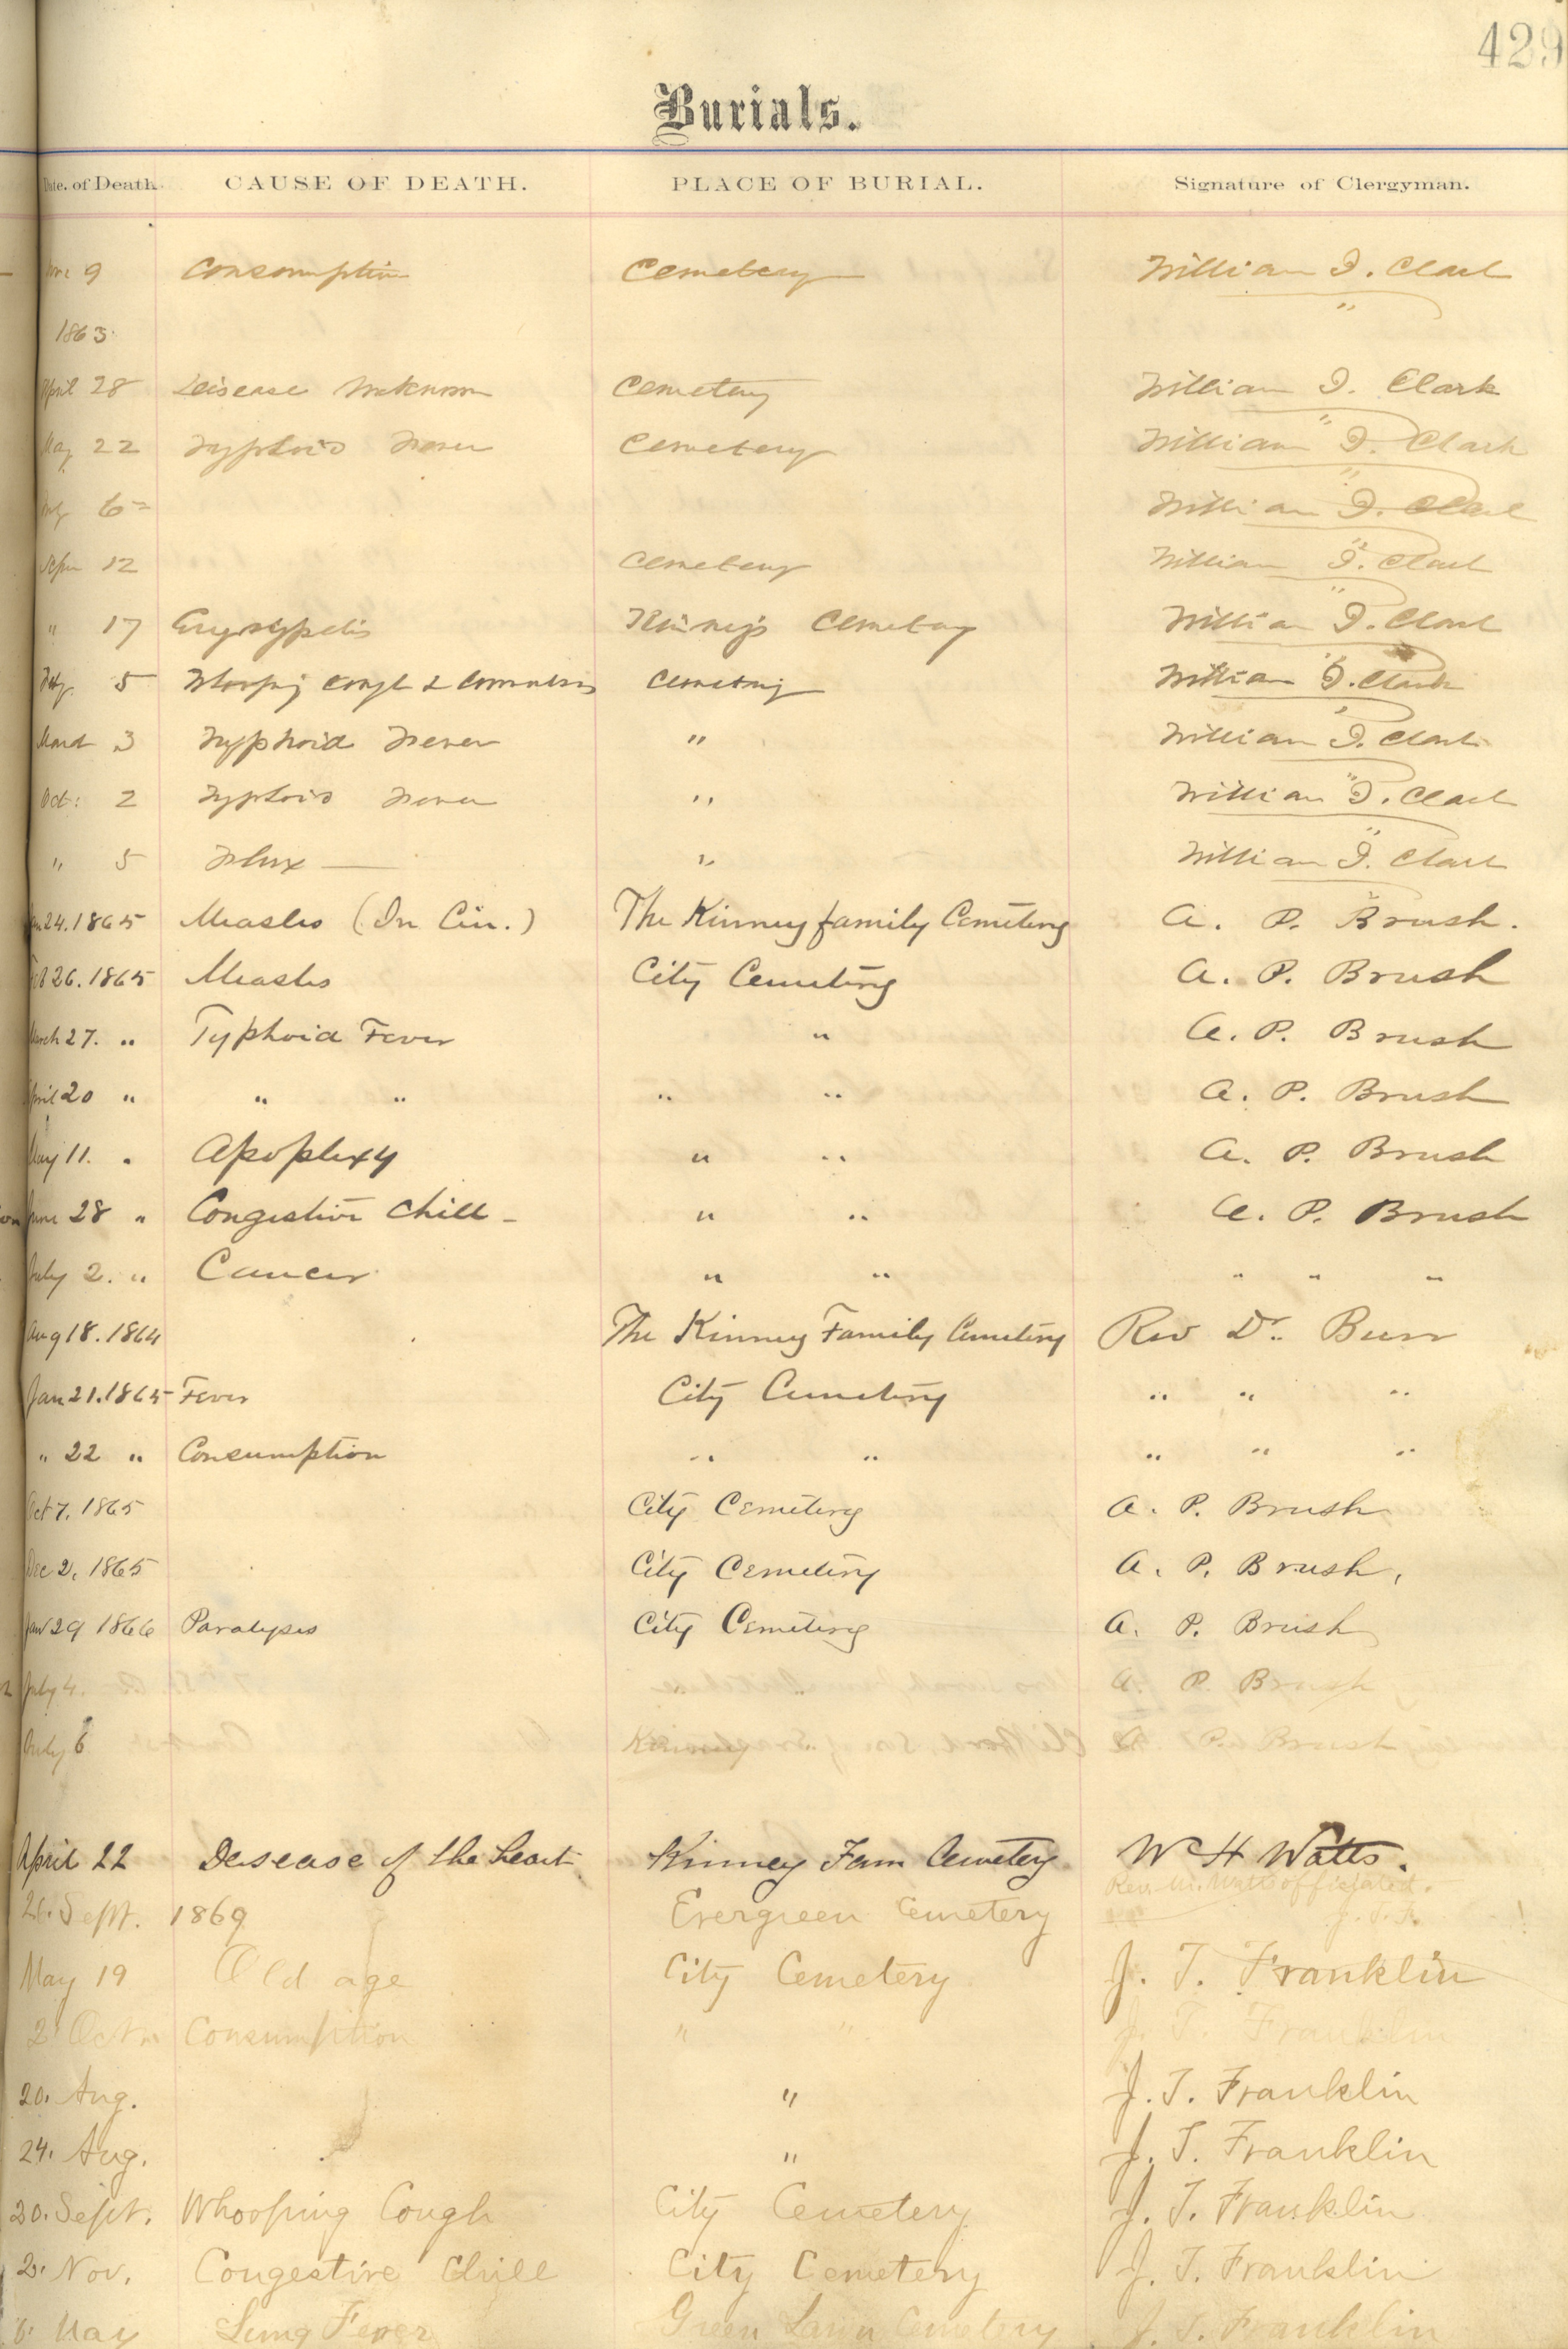 429
Burials.
Date. of Death. CAUSE OF DEATH. PLACE OF BURIAL. Signature of Clergyman.
9 Consumption Cemetery William J. Clark
1863 "
April 28 Disease Unknown Cemetery William J. Clark
May 22 Typhoid Fever Cemetery " William J. Clark
6 " William J. Clark
12 Cemetery " William J. Clark
" 17 Cemetery " William J. Clark
5 Cemetery " William J. Clark
March 3 Typhoid Fever " " William J. Clark
Oct: 2 Typhoid Fever " " William J. Clark
" 5 Flux — " " William J. Clark
24. 1865 Measles (In Cin.) The Kinney family Cemetery " A. P. Brush.
Feb 26. 1865 Measles City Cemetery A. P. Brush
March 27. " Typhoid Fever " A. P. Brush
April 20 " " " " " A. P. Brush
May 11. " Apoplexy " " A. P. Brush
June 28 " Congestive Chill - " " A. P. Brush
July 2. " Cancer " " " " "
Aug 18. 1864 The Kinney Family Cemetery Rev Dr. Burr
Jan 21. 1865 Fever City Cemetery " " "
" 22 " Consumption " " " " "
Oct 7. 1865 City Cemetery A. P. Brush
Dec 2. 1865 City Cemetery A. P. Brush,
Jan 29 1866 Paralysis City Cemetery A. P. Brush
July 4. A. P. Brush
July 6 A. P. Brush
April 22 Desease of the heart Kinney Fam Cemetery W H Watts.
Rev. Watts officiated.
Sept. 1869 Evergreen Cemetery
May 19 Old age City Cemetery J. T. Franklin
2. Consumption " " J. T. Franklin
20. Aug. " J. T. Franklin
24. Aug. " J. T. Franklin
20. Sept. Whooping Cough City Cemetery J. T. Franklin
2. Nov. Congestive Chill City Cemetery J. T. Franklin
6. May Lung Fever Green Lawn Cemetery J. T. Franklin